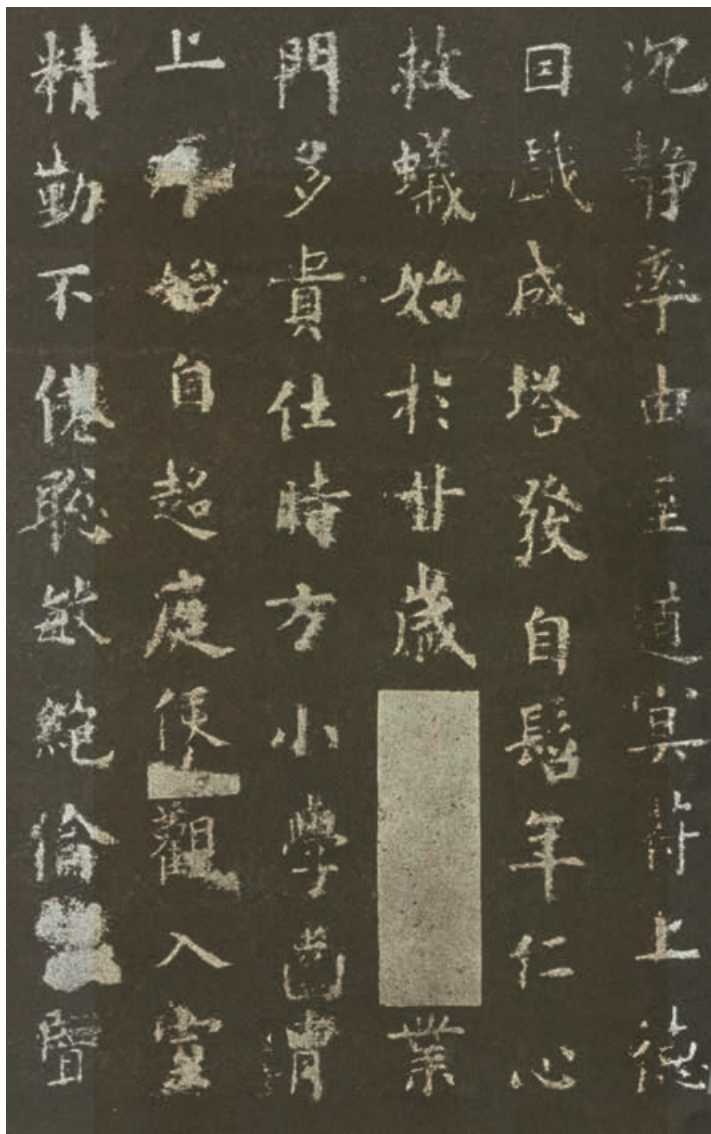 沉静率由至道冥符上德
因戲成塔發自髫年仁心
救蟻始於廿歲業
門多貴仕時方小學齒胄
上始自超庭便觀入室
精勤不倦聰敏絕倫